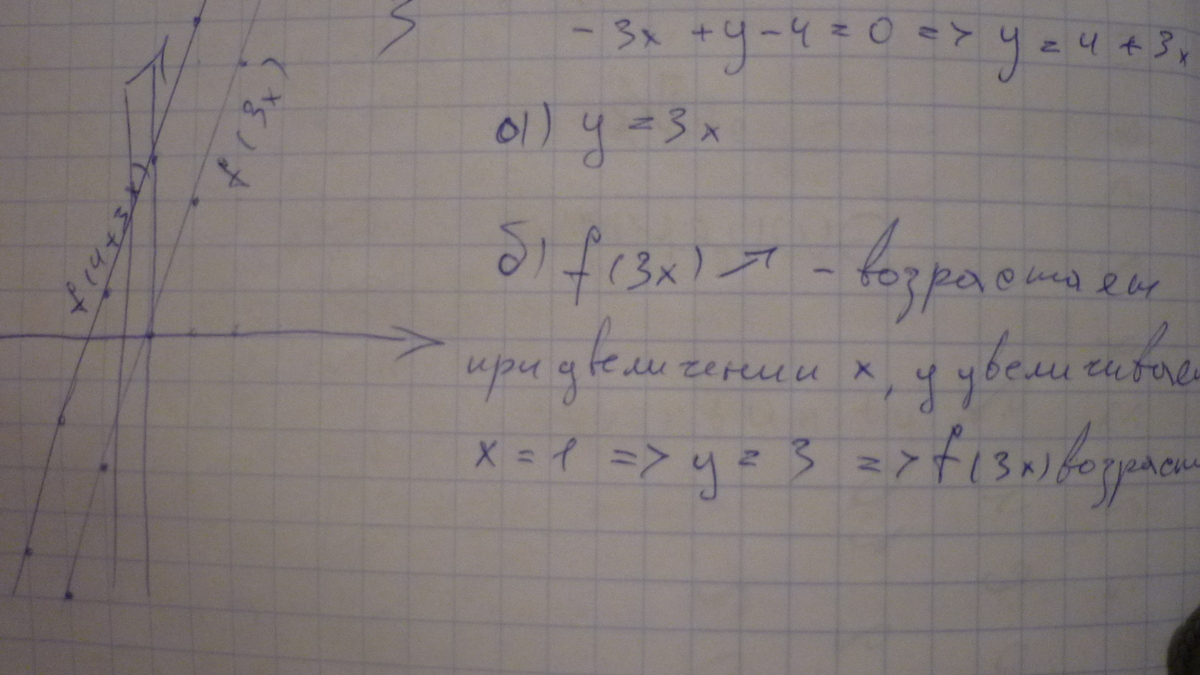 3
- 3x + y - 4 = 0 => y = 4 + 3x
f(3x)
а) y = 3x
f(4+3x)
б) f(3x) ↗ - возрастает
при увеличении x, y увеличивае
x = 1 => y = 3 => f(3x) возраст